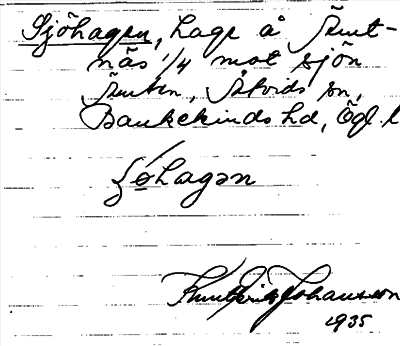 Sjöhagen, hage å Ämt-
näs 1/4 mot sjön
Ämten, Åtvids sn,
Bankekinds hd, Ögl. l
ʃøhagən
Knut Erik Johansson
1935